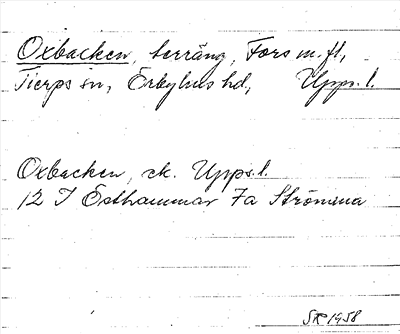 Oxbacken, terräng, Fors m.fl.,
Tierps sn, Örbyhus hd, Upps. l.
Oxbacken, ek. Upps. l.
12 I Östhammar 7a Strömma
SR 1958